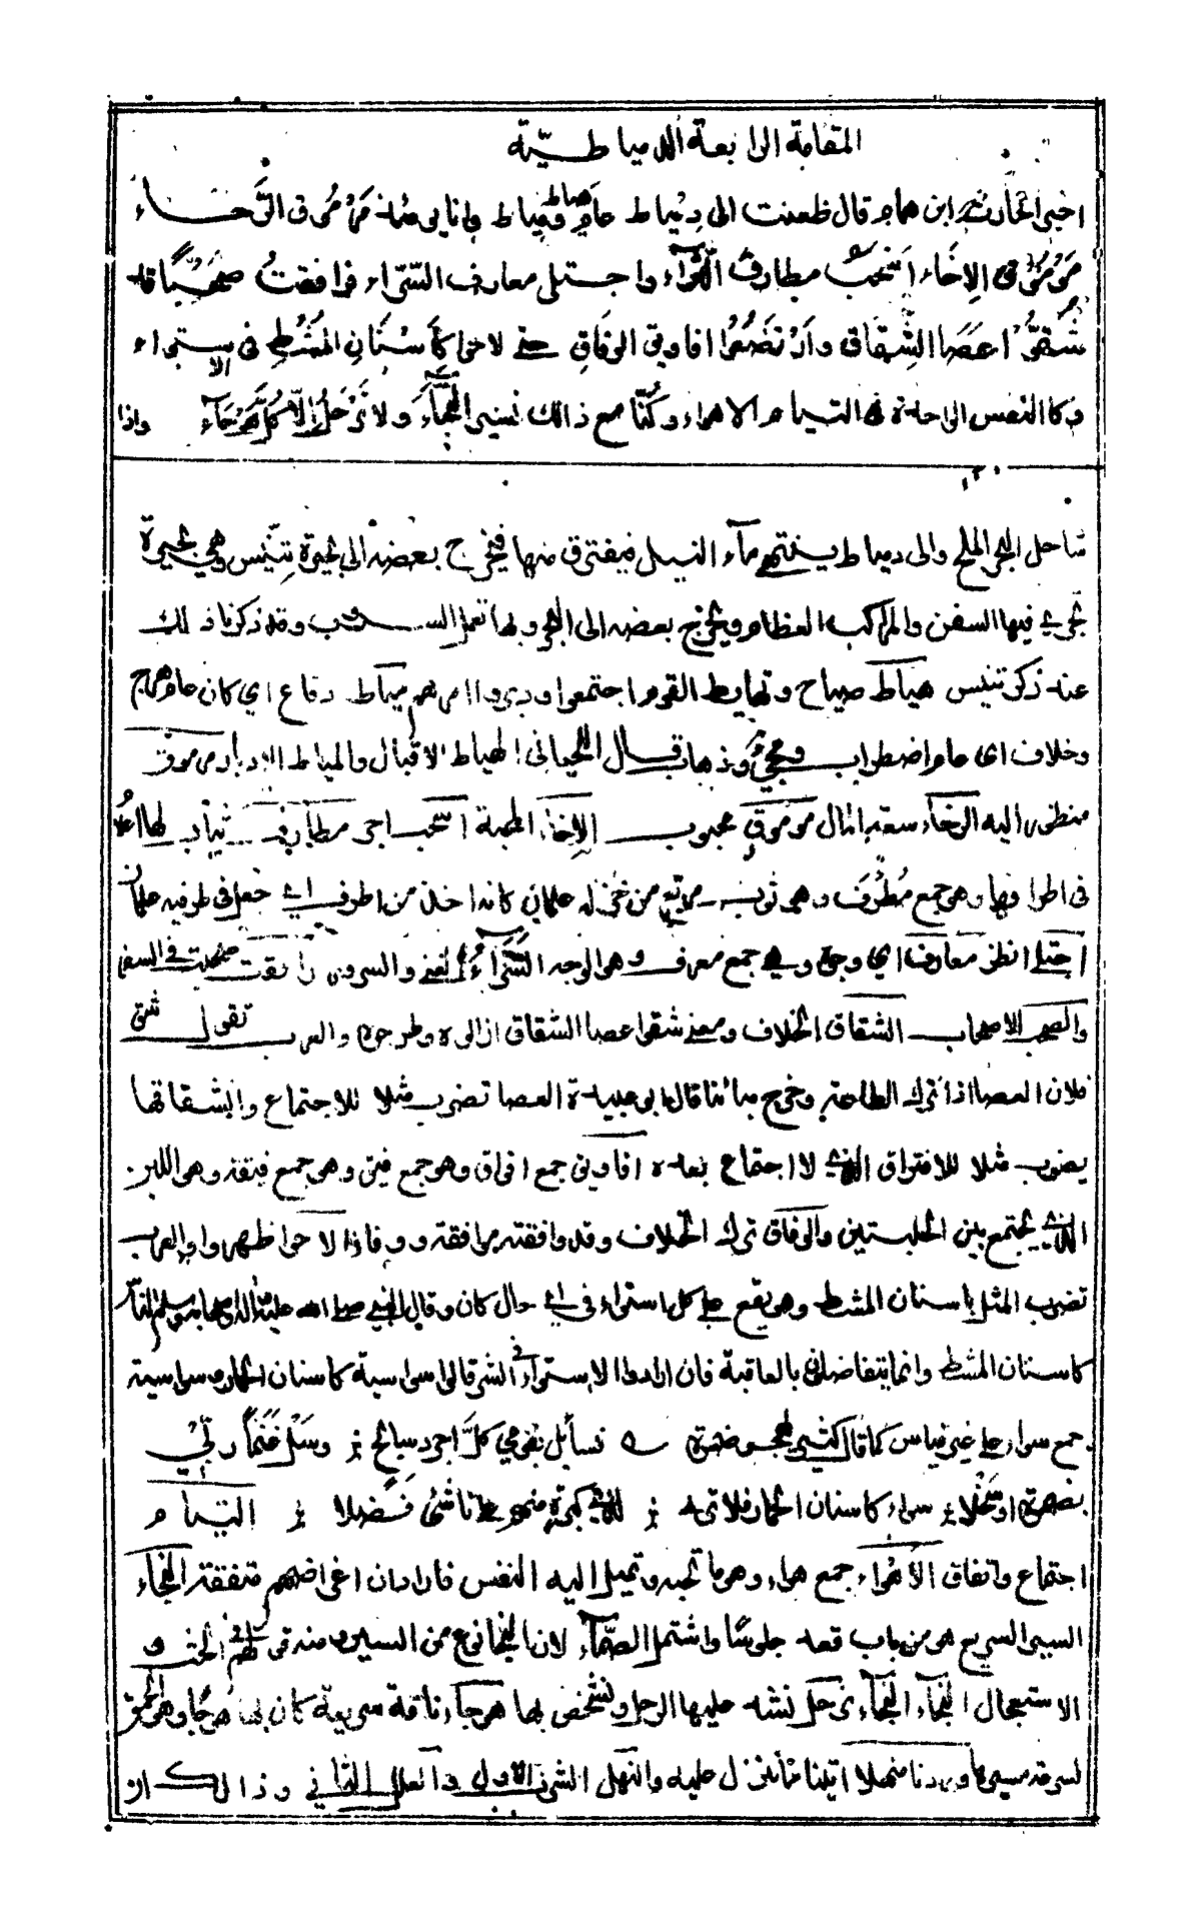 المقامة الرابعة الدمياطية
اخبر الحارث ابن همام قال ظعنت الى دمياط عام هياط ومياط وانا يومئذ مرموق الرخاء
موموق الاخاء اسحب مطارف الثراء واجتلى معارف السراء فرافقت صحبا قد
شقوا عصا الشقاق وارتضعوا افاويق الوفاق حتى لاحوا كأسنان المشط فى الاستواء
وكالنفس الواحدة فى التيام الاهواء وكنا مع ذالك نسير النجاء ولا نرحل الا كل هوجاء واذا
ساحل البحر الملح والى دمياط ينتهى ماء النيل فيفترق منها فيخرج بعضه الى بحيرة تنيس وهي بحيرة
تجرى فيها السفن والمراكب العظام ويخرج بعضه الى البحر وبها تعمل وقد ذكرنا ذلك
عند ذكر تنيس هياط صياح وتهايط القوم اجتمعوا ودبروا امرهم مياط دفاع اي كان عام هياج
وخلاف اى عام اضطراب ومجئ وذهاب قال اللحيانى الهياط الاقبال والمياط الادبار مرموق
منظور اليه الرخاء سعة المال موموق محبوب الاخاء المحبة اسحب اجر مطارف ثياب لها اعلام
فى اطرافها وهو جمع مطرف وهو ثوب مربع من خز له علمان كانه اخذ من اطرف اي جعل فى طرفيه علمان
اجتلى انظر معارف اي وجوه وهى جمع معرف وهو الوجه السراء الغنى والسرور رافقت صحبت فى السفر
والصحب الاصحاب الشقاق الخلاف ومعنى شقوا عصا الشقاق ازالوه وطرحوه والعرب تقول شق
فلان العصا اذا ترك الطاعة وخرج مبائنا قال ابو عبيدة العصا تضرب مثلا للاجتماع وانشقاقها
يضرب مثلا للافتراق الذى لا اجتماع بعده افاويق جمع افواق وهو جمع فيق وهو جمع فيقة وهو اللبن
الذى يجتمع بين الحلبتين والوفاق ترك الخلاف وقد وافقته موافقة ووفاقا لاحوا ظهروا والعرب
تضرب المثل باسنان المشط وهو يقع على كل استواء فى اي حال كان وقال النبي صلى الله عليه وسلم الناس
كاسنان المشط وانما يتفاضلون بالعاقبة فان ارادوا الاستواء فى الشر قالوا سواسية كاسنان الحمار وسواسية
جمع سواء على غير قياس كما قال كثير وسل غنما ربى
بضمرة او سخلا سواء كاسنان الحمار فلا ترى لذى كبرة منهم على ناشئ فضلا التيام
اجتماع واتفاق الاهواء جمع هواء وهو ما تحبه وتميل اليه النفس فارادان اغراضهم متفقة النجاء
السير السريع هو من باب قعد جلوسا واشتمل الصماء لان النجا نوع من السير
الاستعجال النجاء النجاء نرحل نشد عليها الرحل ولشخص بها هوجاء ناقة سريعة كان بها هوجا وهو الحمق
لسرعة سيرها وردنا منهلا اتينا ماء ننزل عليه والنهل الشرب الاول والعلل الثاني وذالك ان